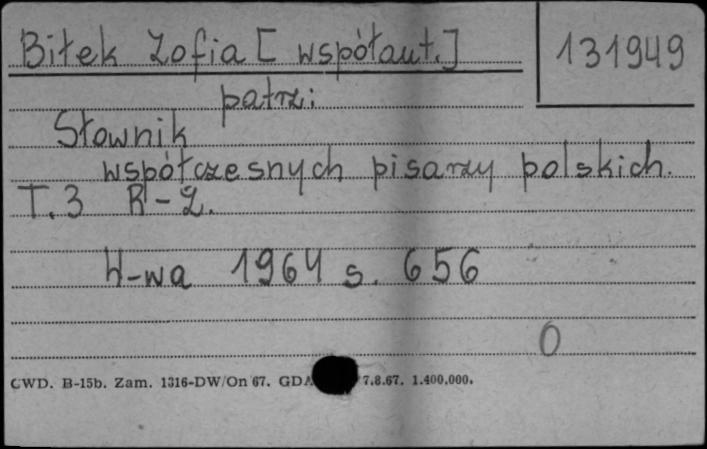 Biłek Zofia [współaut.]
131949
patrz:
Słownik
współczesnych pisarzy polskich.
T. 3 R-Ż.
W-wa 1964 s. 656
0
CWD. B-15b. Zam. 1316-DW/On 67. GDA 7.8.67. 1.400.000.